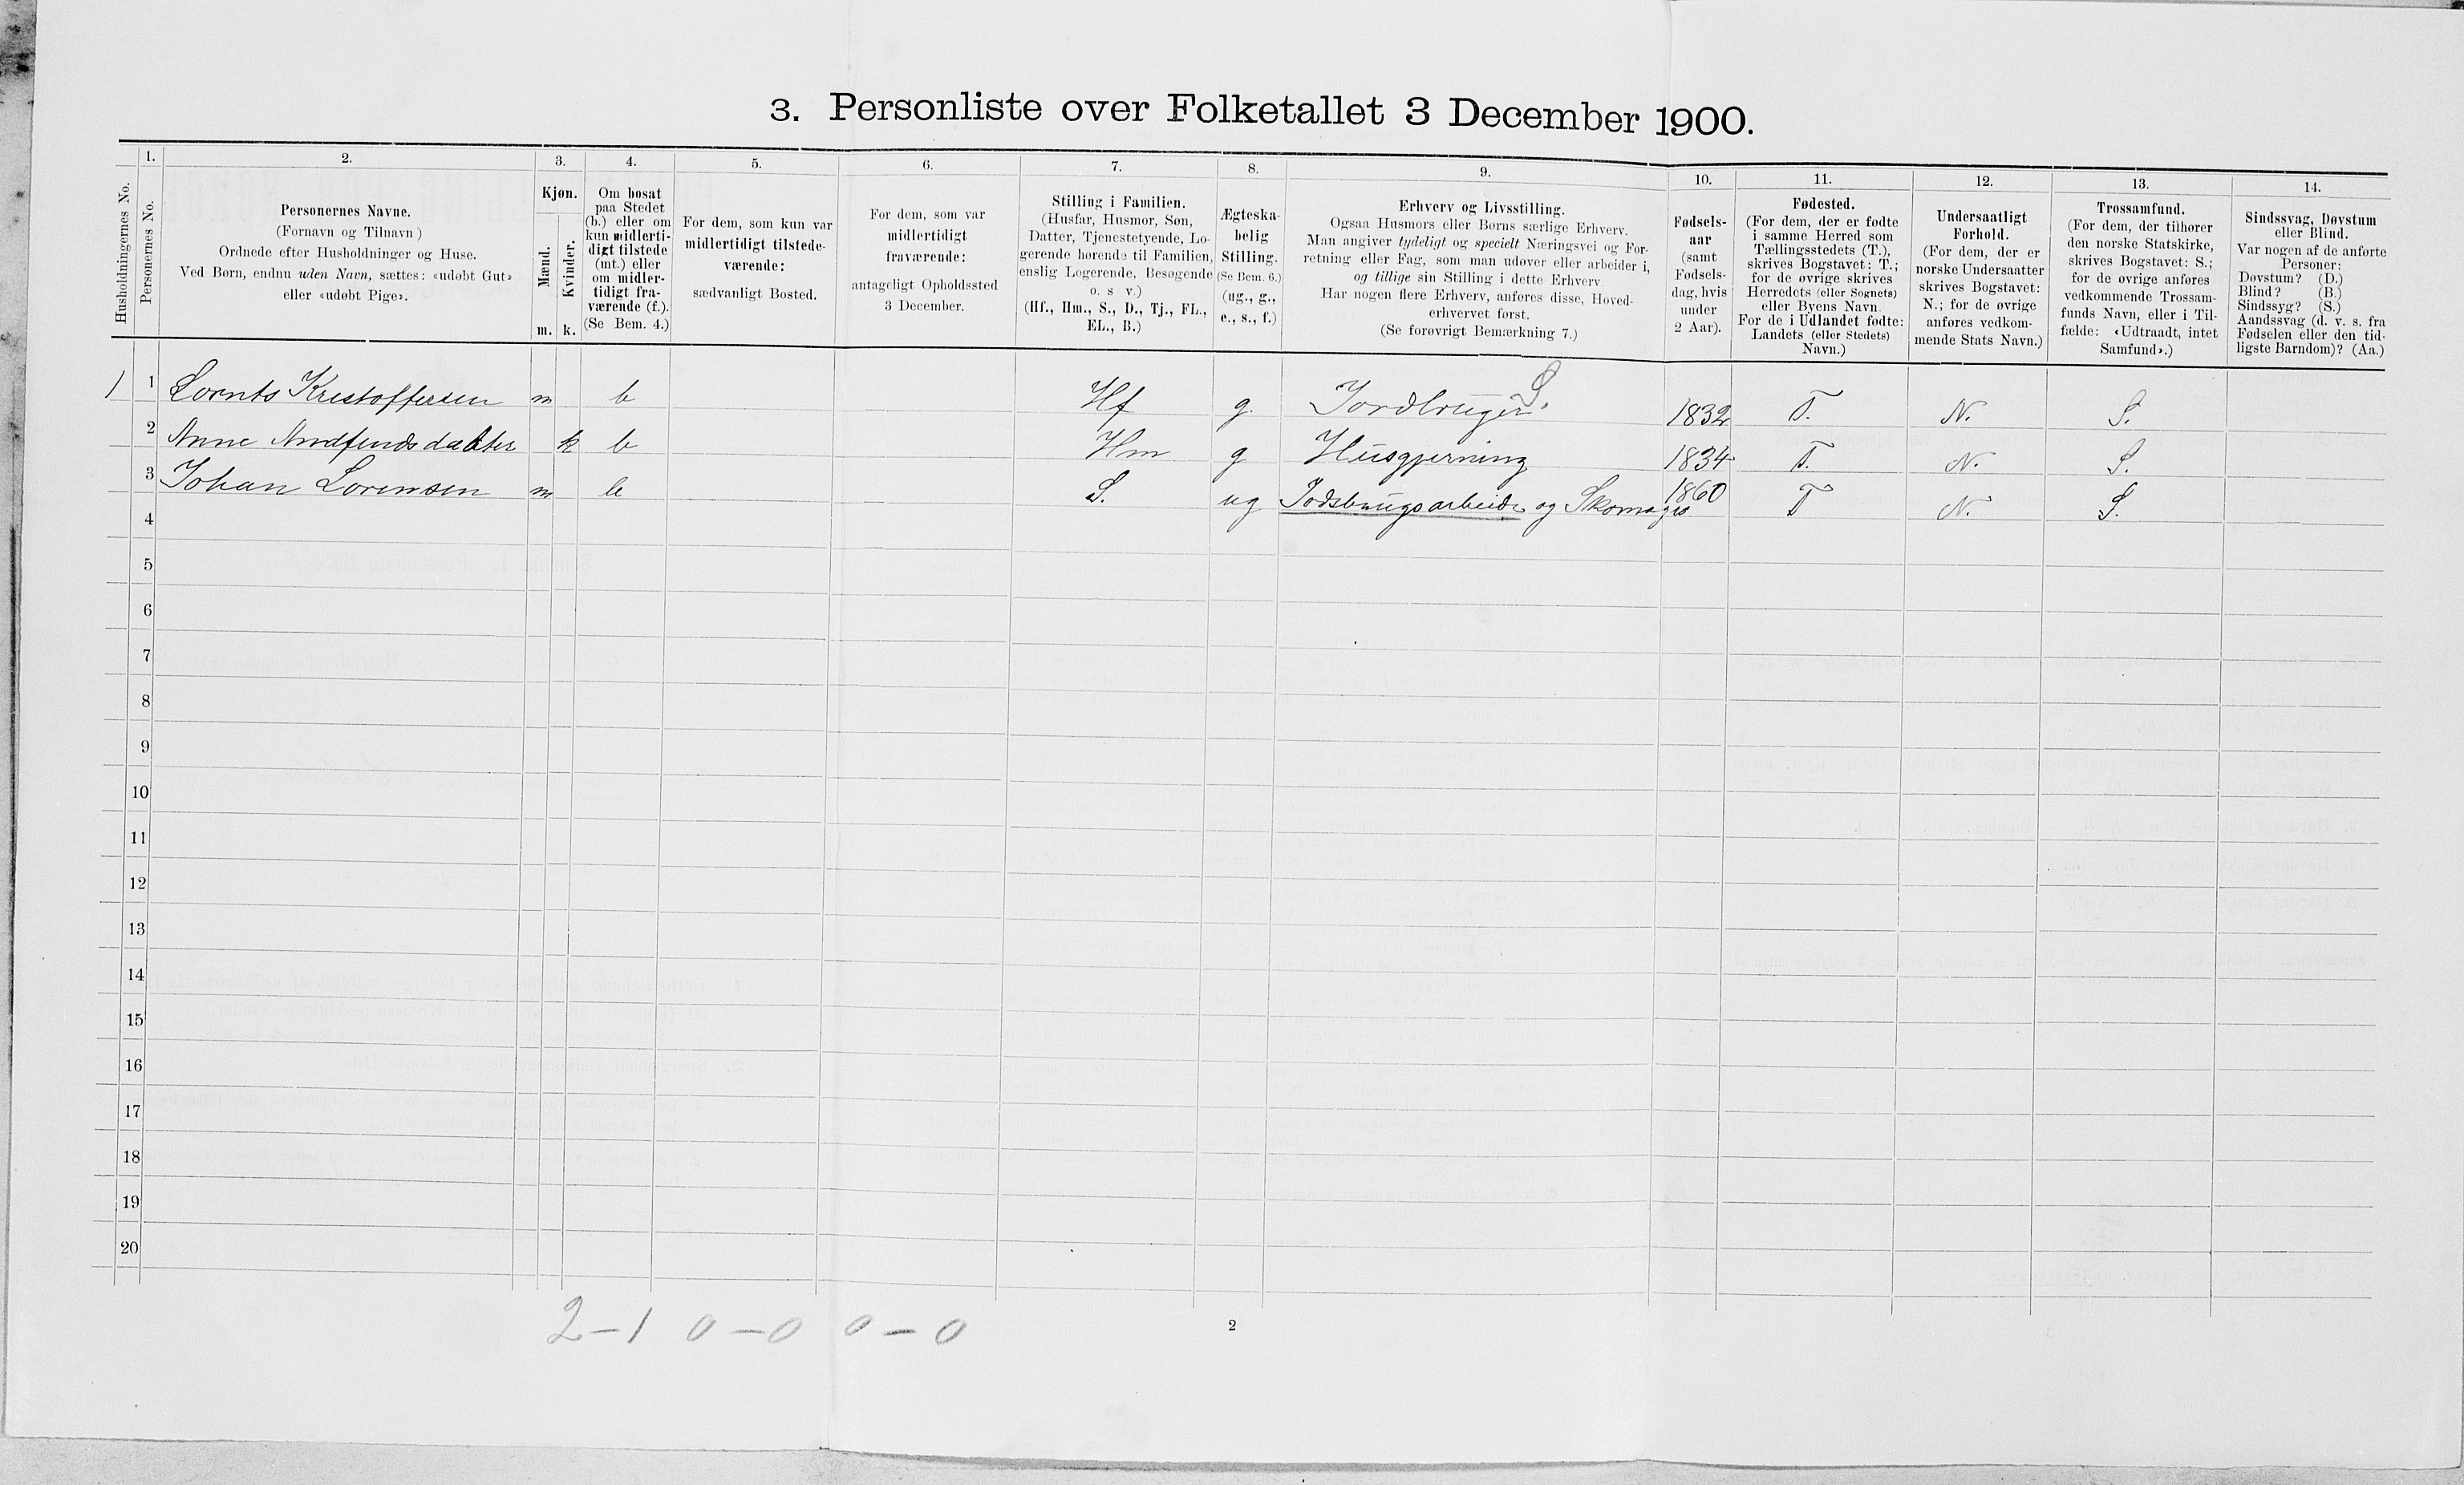 3. Personliste over Folketallet 3 December 1900.
Husholdningernes No.
1.
Personernes No.
2.
Personernes Navne.
(Fornavn og Tilnavn)
Ordnede efter Husholdninger og Huse.
Ved Børn, endnu uden Navn, sættes: «udøbt Gut»
eller «udøbt Pige».
3.
Kjøn.
Mænd.
Kvinder.
m. k.
4.
Om bosat
paa Stedet
(b.) eller om
kun midlerti-
digt tilstede
(mt.) eller
om midler-
tidigt fra-
værende (f.).
(Se Bem. 4.)
5.
For dem, som kun var
midlertidigt tilstede-
værende:
sædvanligt Bosted.
6.
For dem, som var
midlertidigt
fraværende:
antageligt Opholdssted
3 December.
7.
Stilling i Familien.
(Husfar, Husmor, Søn,
Datter, Tjenestetyende, Lo-
gerende hørende til Familien,
enslig Logerende, Besøgende
o. s v.)
(Hf., Hm., S., D., Tj., FL.,
EL., B.)
8.
Ægteska-
belig
Stilling.
(Se Bem. 6.)
(ug., g.,
e., s., f.)
9.
Erhverv og Livsstilling.
Ogsaa Husmors eller Børns særlige Erhverv.
Man angiver tydeligt og specielt Næringsvei og For-
retning eller Fag, som man udøver eller arbeider i,
og tillige sin Stilling i dette Erhverv.
Har nogen flere Erhverv, anføres disse, Hoved-
erhvervet først.
(Se forøvrigt Bemærkning 7.)
10.
Fødsels-
aar
(samt
Fødsels-
dag, hvis
under
2 Aar).
11.
Fødested.
(For dem, der er fødte
i samme Herred som
Tællingsstedets (T.),
skrives Bogstavet: T.;
for de øvrige skrives
Herredets (eller Sognets)
eller Byens Navn.
For de i Udlandet fødte:
Landets (eller Stedets)
Navn.)
12.
Undersaatligt
Forhold.
(For dem, der er
norske Undersaatter
skrives Bogstavet:
N.; for de øvrige
anføres vedkom-
mende Stats Navn.)
13.
Trossamfund.
(For dem, der tilhører
den norske Statskirke,
skrives Bogstavet: S.;
for de øvrige anføres
vedkommende Trossam-
funds Navn, eller i Til-
fælde: «Udtraadt, intet
Samfund».)
14.
Sindssvag, Døvstum
eller Blind.
Var nogen af de anførte
Personer:
Døvstum? (D.)
Blind? (B.)
Sindssyg? (S.)
Aandssvag (d. v. s. fra
Fødselen eller den tid-
ligste Barndom)? (Aa.)
1 1 Lornts Kristoffersen m b Hf g. Jordbruger S. 1832 T. N. S.
2 Anne Arndfinds datter k b Hm g Husgjerning 1834 T. N. S.
3 Johan Lorensen m b S. ug Jodsbrugsarbeide og Skomager 1860 T N. S.
4
5
6
7
8
9
10
11
12
13
14
15
16
17
18
19
20
2-1 0-0 0-0
2